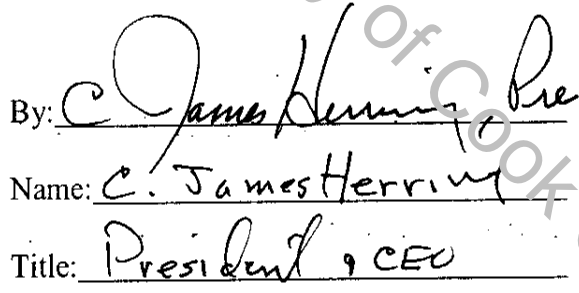 of Cook
By: C James Herring, Pre
Name: C. James Herring
Title: President & CEO